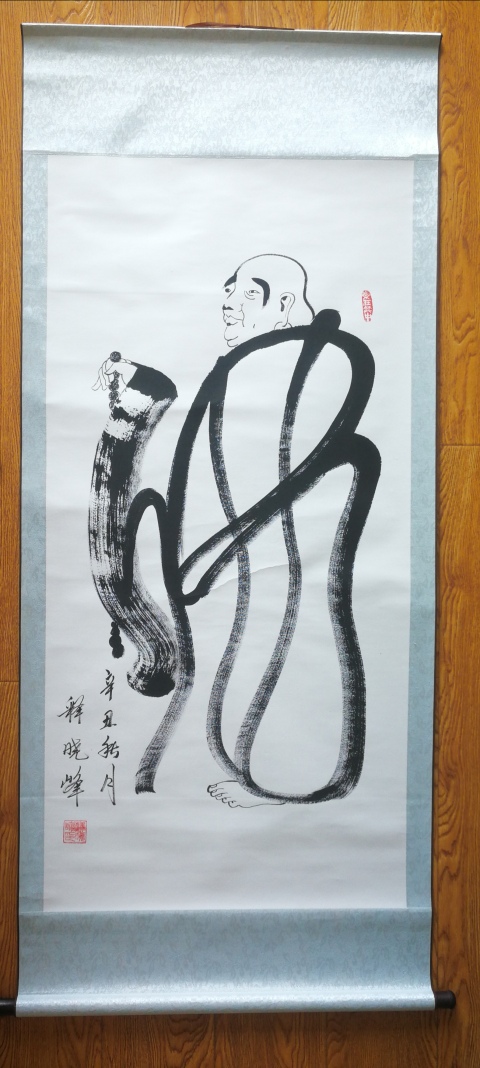 佛
辛丑秋月
释晓峰